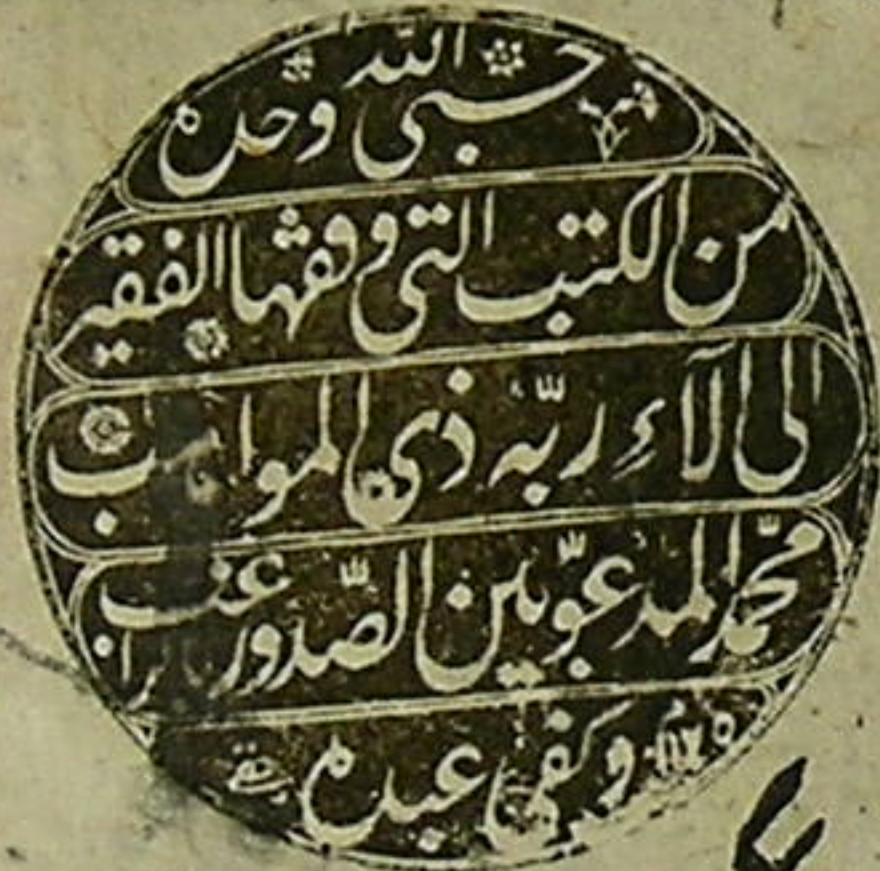 حسبى الله وحده
من الكتب التى وقفها الفقير
الى آلاء ربّه ذى المواهب
محمّد المدعوّ بين الصّدور براغب
وكفى عبده